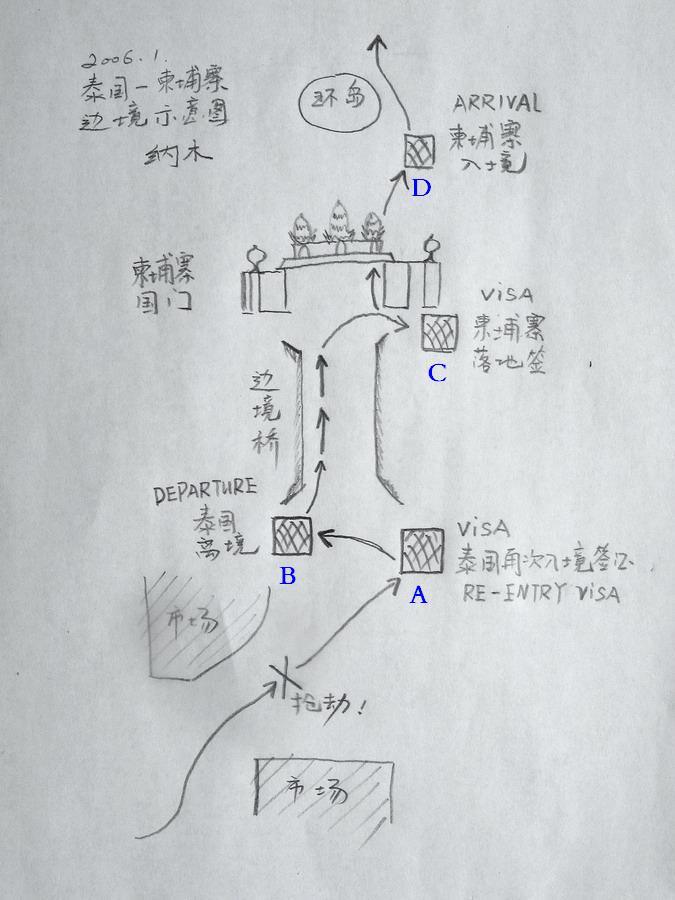 2006.1.
泰国—柬埔寨
边境示意图
纳木
环岛
ARRIVAL
柬埔寨
入境
D
柬埔寨
国门
VISA
柬埔寨
落地签
C
边
境
桥
DEPARTURE
泰国
离境
B
VISA
泰国再次入境签证
RE-ENTRY VISA
A
市场
抢劫!
市场